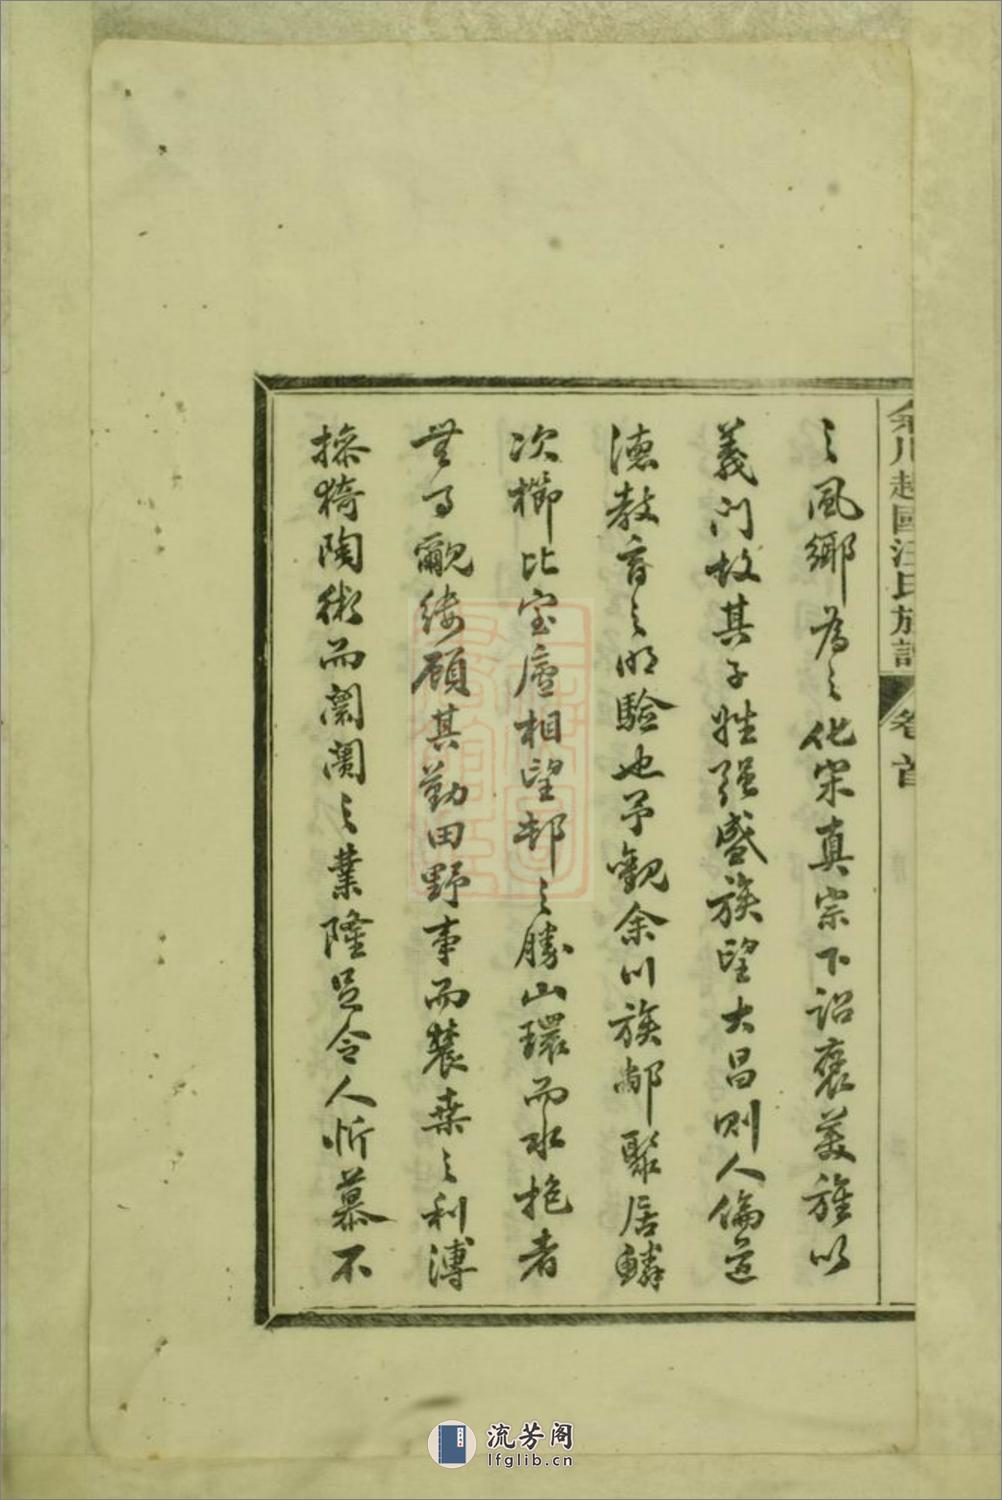 余川越國汪氏族譜 卷首
之風鄉為之化宋真宗下詔褒美旌以
義門故其子姓强盛族望大昌則人倫道
德教育之明驗也予觀余川族鄰聚居鱗
次櫛比室廬相望邨之勝山環而水抱者
無可覼縷顧其勤田野事而農桑之利溥
操猗陶術而闤闠之業隆足令人忻慕不
流芳阁
lfglib.cn